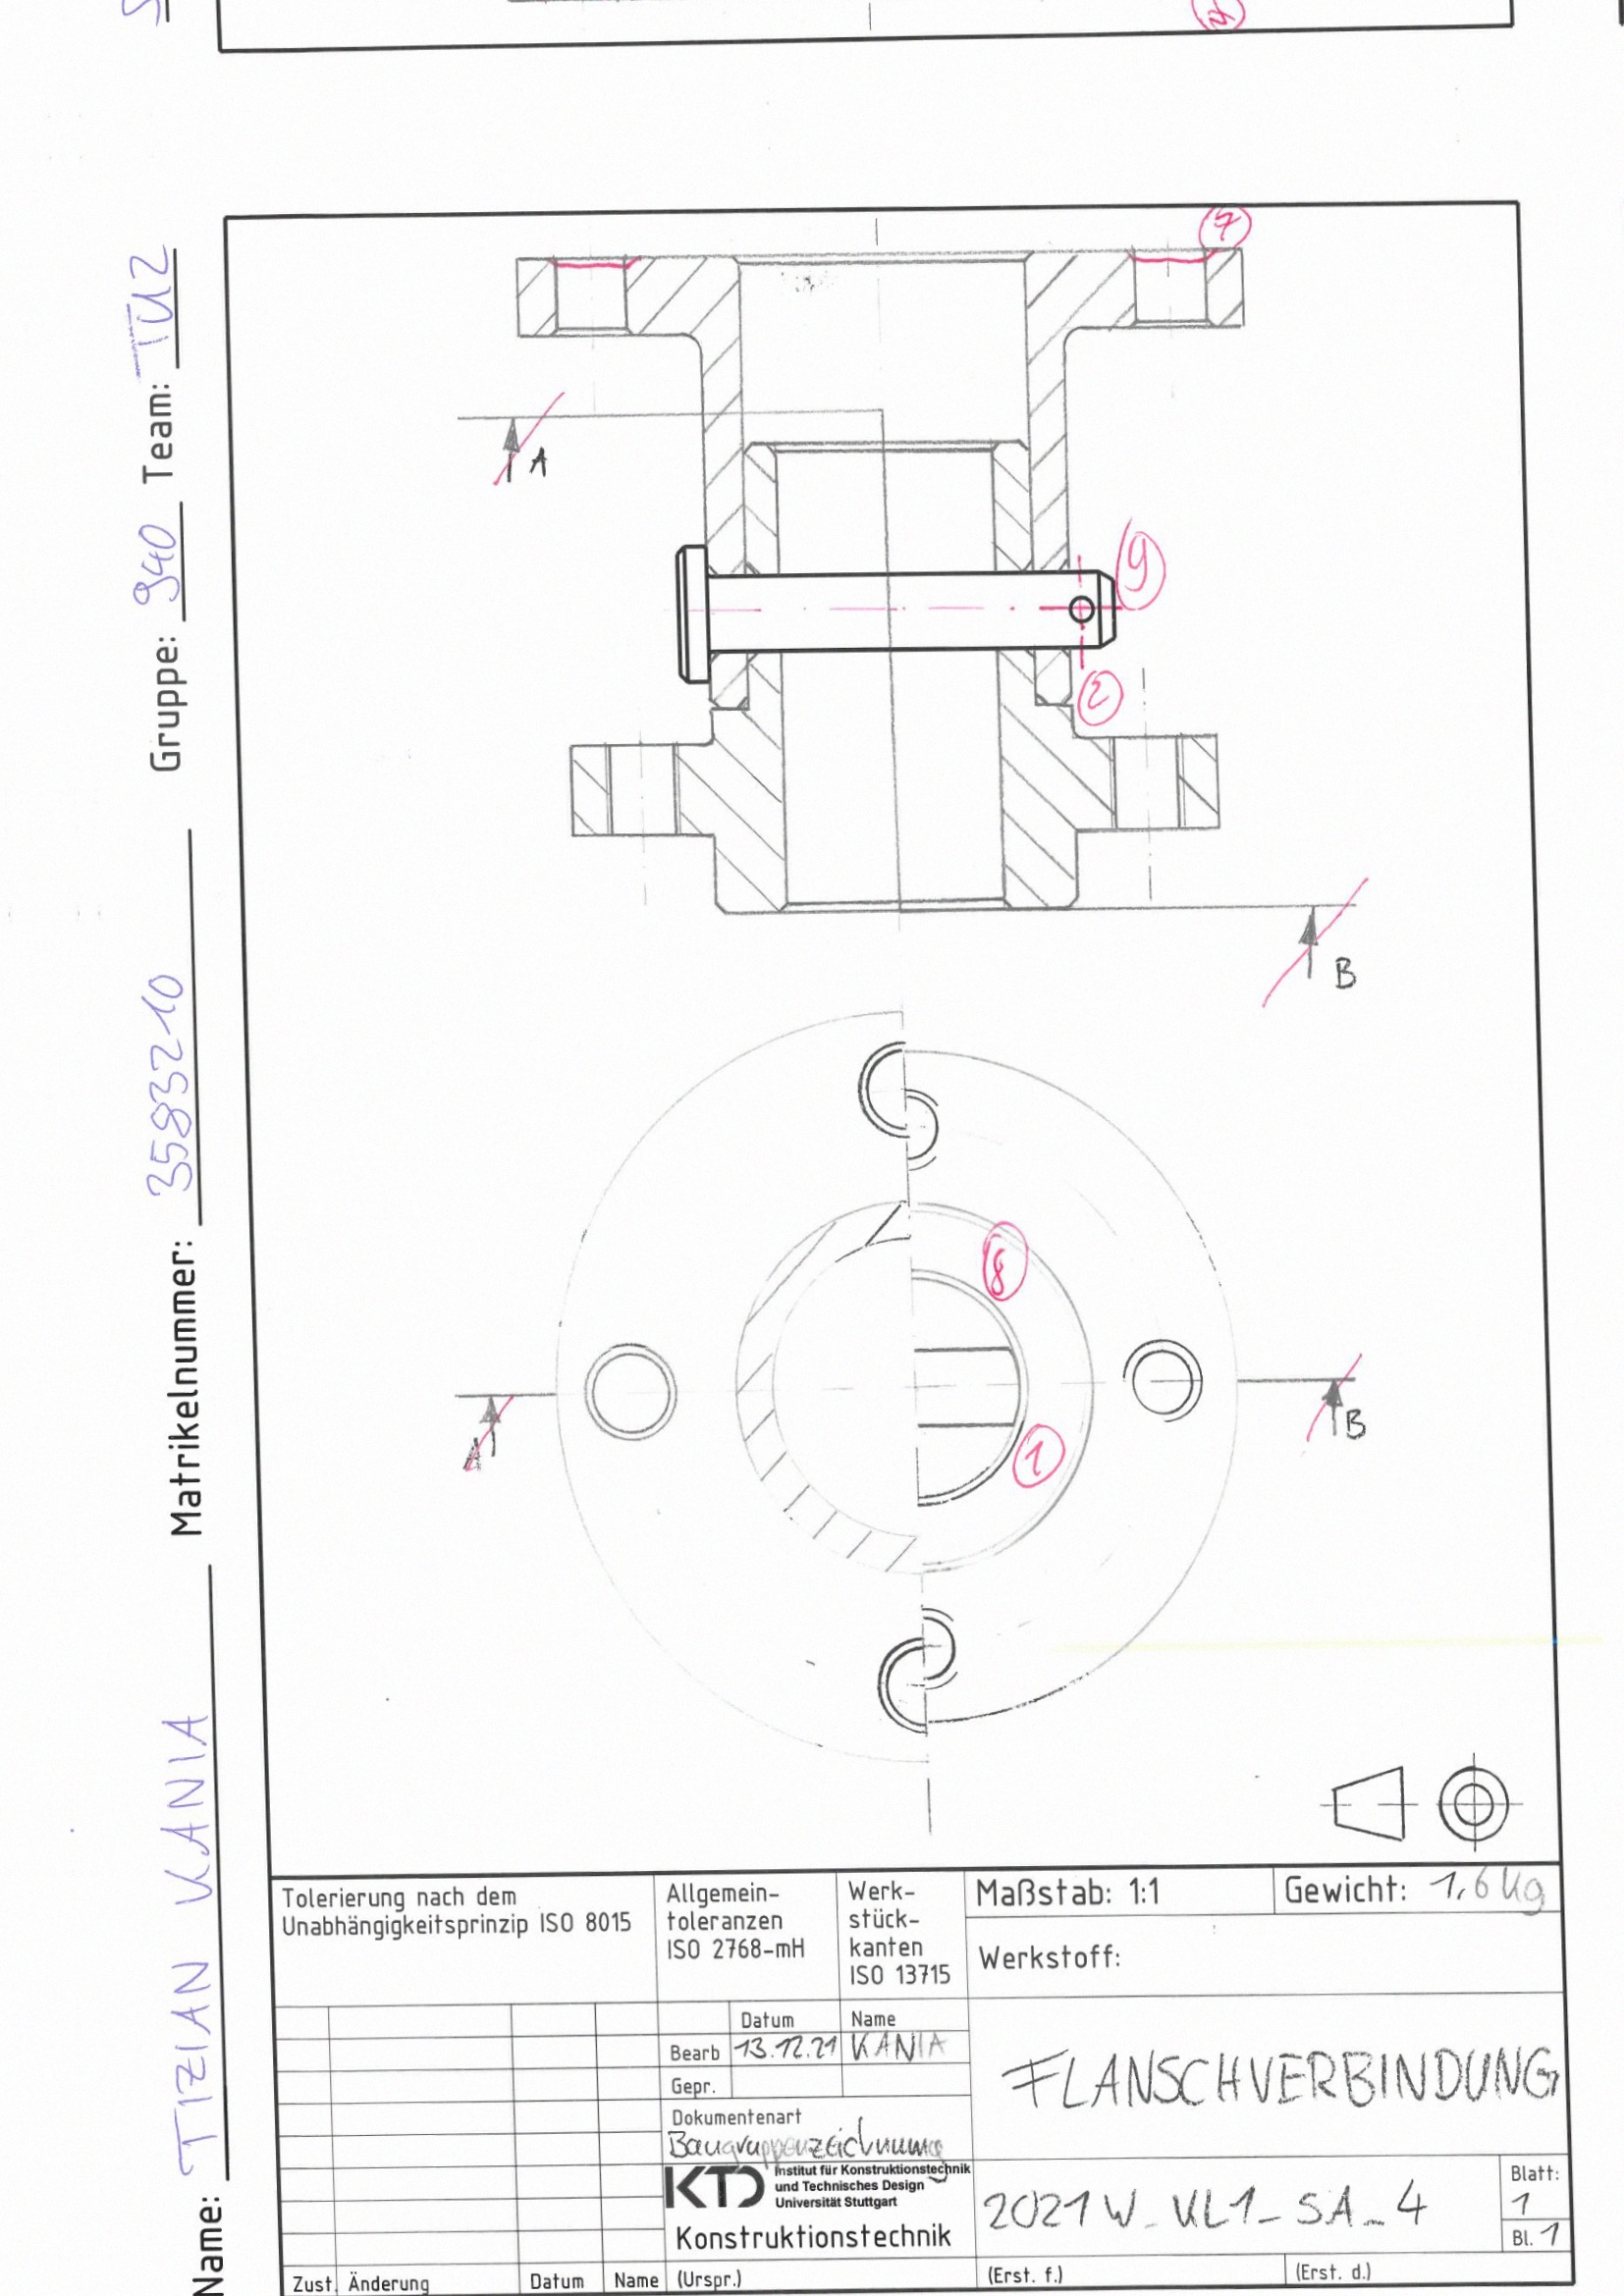 Name: TIZIAN KANIA Matrikelnummer: 3583210 Gruppe: 940 Team: TU2
7
A
9
2
B
8
1
A
B
Tolerierung nach dem
Unabhängigkeitsprinzip ISO 8015
Allgemein-
toleranzen
ISO 2768-mH
Werk-
stück-
kanten
ISO 13715
Maßstab: 1:1
Gewicht: 1,6 kg
Werkstoff:
Datum
Name
Bearb 13.12.21 KANIA
Gepr.
FLANSCHVERBINDUNG
Dokumentenart
Baugruppenzeichnung
KTD
Institut für Konstruktionstechnik
und Technisches Design
Universität Stuttgart
Konstruktionstechnik
2021W_KL1_SA_4
Blatt:
1
Bl. 1
Zust. Änderung Datum Name (Urspr.) (Erst. f.) (Erst. d.)